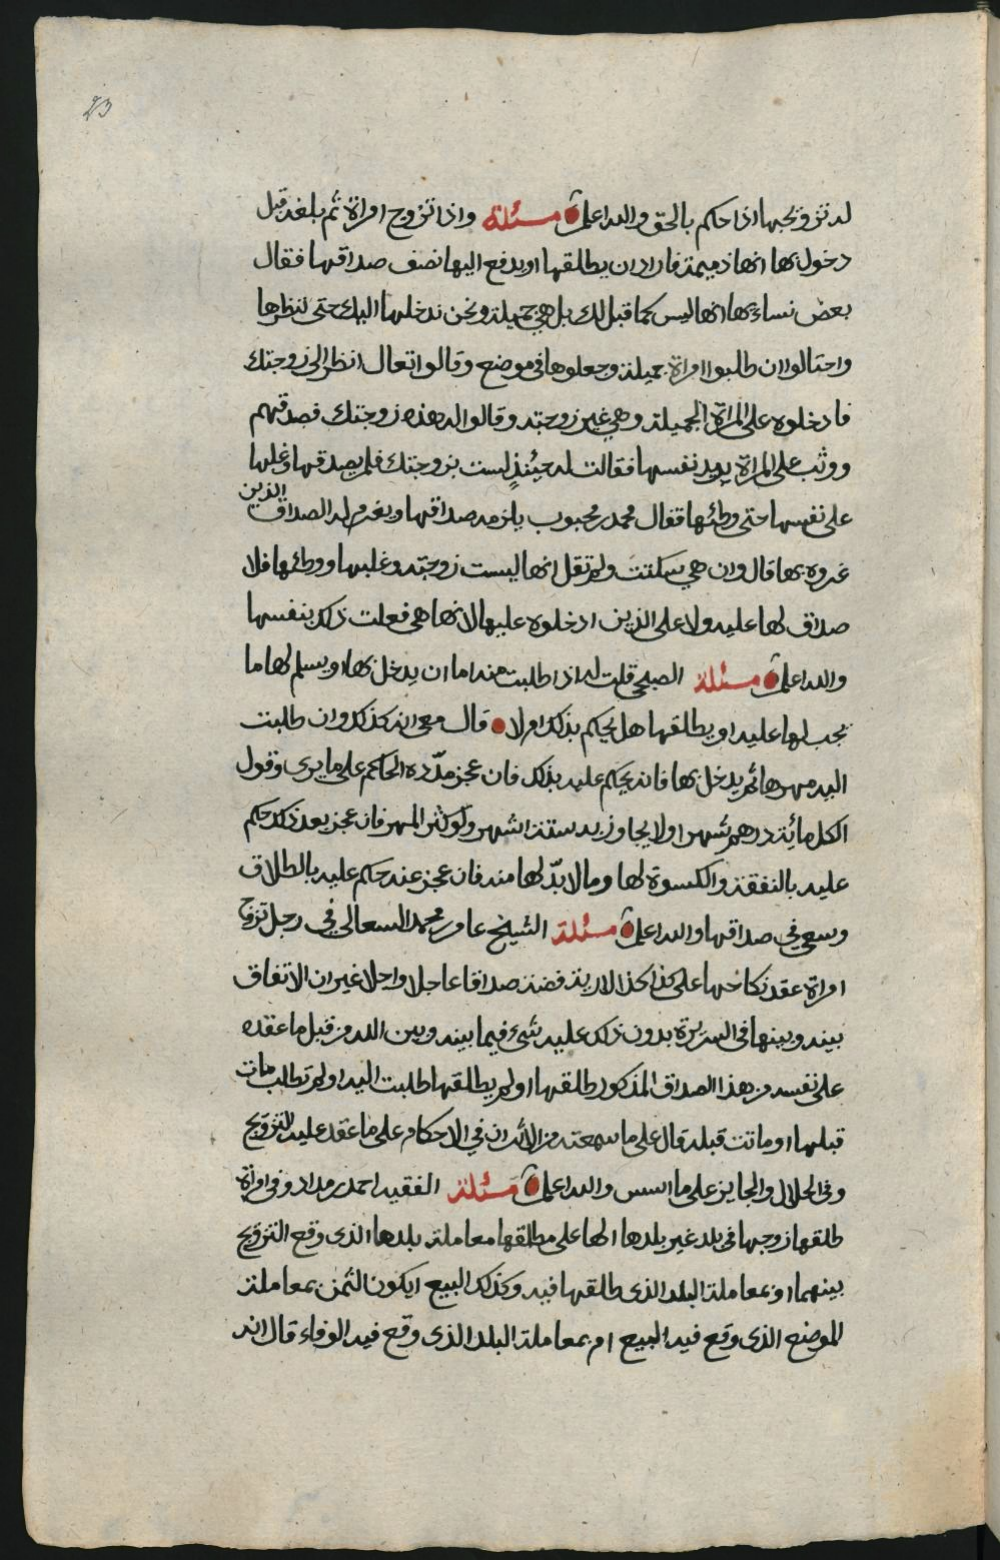 23
له تزويجها اذا حكم بالحق والله اعلم مسئلة واذا تزوج امراة ثم بلغه قبل
دخوله بها انها ذميمة فاراد ان يطلقها او يدفع اليها نصف صداقها فقال
بعض نساءها انها ليس كما قيل لك بل هي جميلة ونحن ندخلها اليك حتى تنظرها
واحتالوا ان طلبوا امراة جميلة وجعلوها في موضع وقالوا تعال انظر الى زوجتك
فادخلوه على المراة الجميلة وهي غير زوجته وقالوا له هذه زوجتك فصدقهم
ووثب على المراة يريد نفسها فقالت له حينئذٍ لست بزوجتك فلم يصدقها وغلبها
على نفسها حتى وطئها فقال محمد بن محبوب يلزمه صداقها ويغرم له الصداق الذين
غروه بها قال وان هي سكتت ولم تقل انها ليست زوجته وغلبها ووطئها فلا
صداق لها عليه ولا على الذين ادخلوه عليها لانها هي فعلت ذلك بنفسها
والله اعلم مسئلة الصبحي قلت له اذا طلبت منه اما ان يدخل بها او يسلم لها ما
يجب لها عليه او يطلقها هل يحكم بذلك ام لا قال معي انه كذلك وان طلبت
اليه مهرها ثم يدخل بها فانه يحكم عليه بذلك فان عجز مدّده الحاكم على ما يرى وقول
الكل مائة درهم شهرا ولا يجاوز به ستة اشهر ولو كثر المهر فان عجز بعد ذلك حكم
عليه بالنفقة والكسوة لها وما لا بدّ لها منه فان عجز عنه حكم عليه بالطلاق
وسعى في صداقها والله اعلم مسئلة الشيخ عامر بن محمد السعالي في رجل تزوج
امراة عقد نكاحها على كذا كذا لارية فضة صداقا عاجلا واجلا غير ان الاتفاق
بينه وبينها في السريرة بدون ذلك عليه شيء فيما بينه وبين الله من قبل ما عقده
على نفسه من هذا الصداق المذكور طلقها او لم يطلقها طلبت اليه او لم تطلب مات
قبلها او ماتت قبله قال على ما سمعته من الاثر ان في الاحكام على ما عقد عليه التزويج
وفي الحلال والجايز على ما اسس والله اعلم مسئلة الفقيه احمد بن مداد وفي امراة
طلقها زوجها في بلد غير بلدها الها على مطلقها معاملة بلدها الذي وقع التزويج
بينهما او بمعاملة البلد الذي طلقها فيه وكذلك البيع ايكون الثمن بمعاملة
الموضع الذي وقع فيه البيع ام بمعاملة البلد الذي وقع فيه الوفاء قال انه